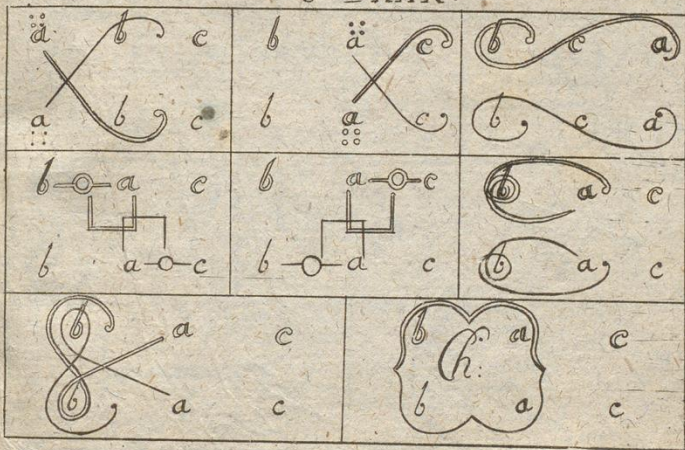 a b c
a b c
b a c
b a c
b c a
b c a
b a c
b a c
b a c
b a c
b a c
b a c
b a c
b a c
b a c
Ch:
b a c